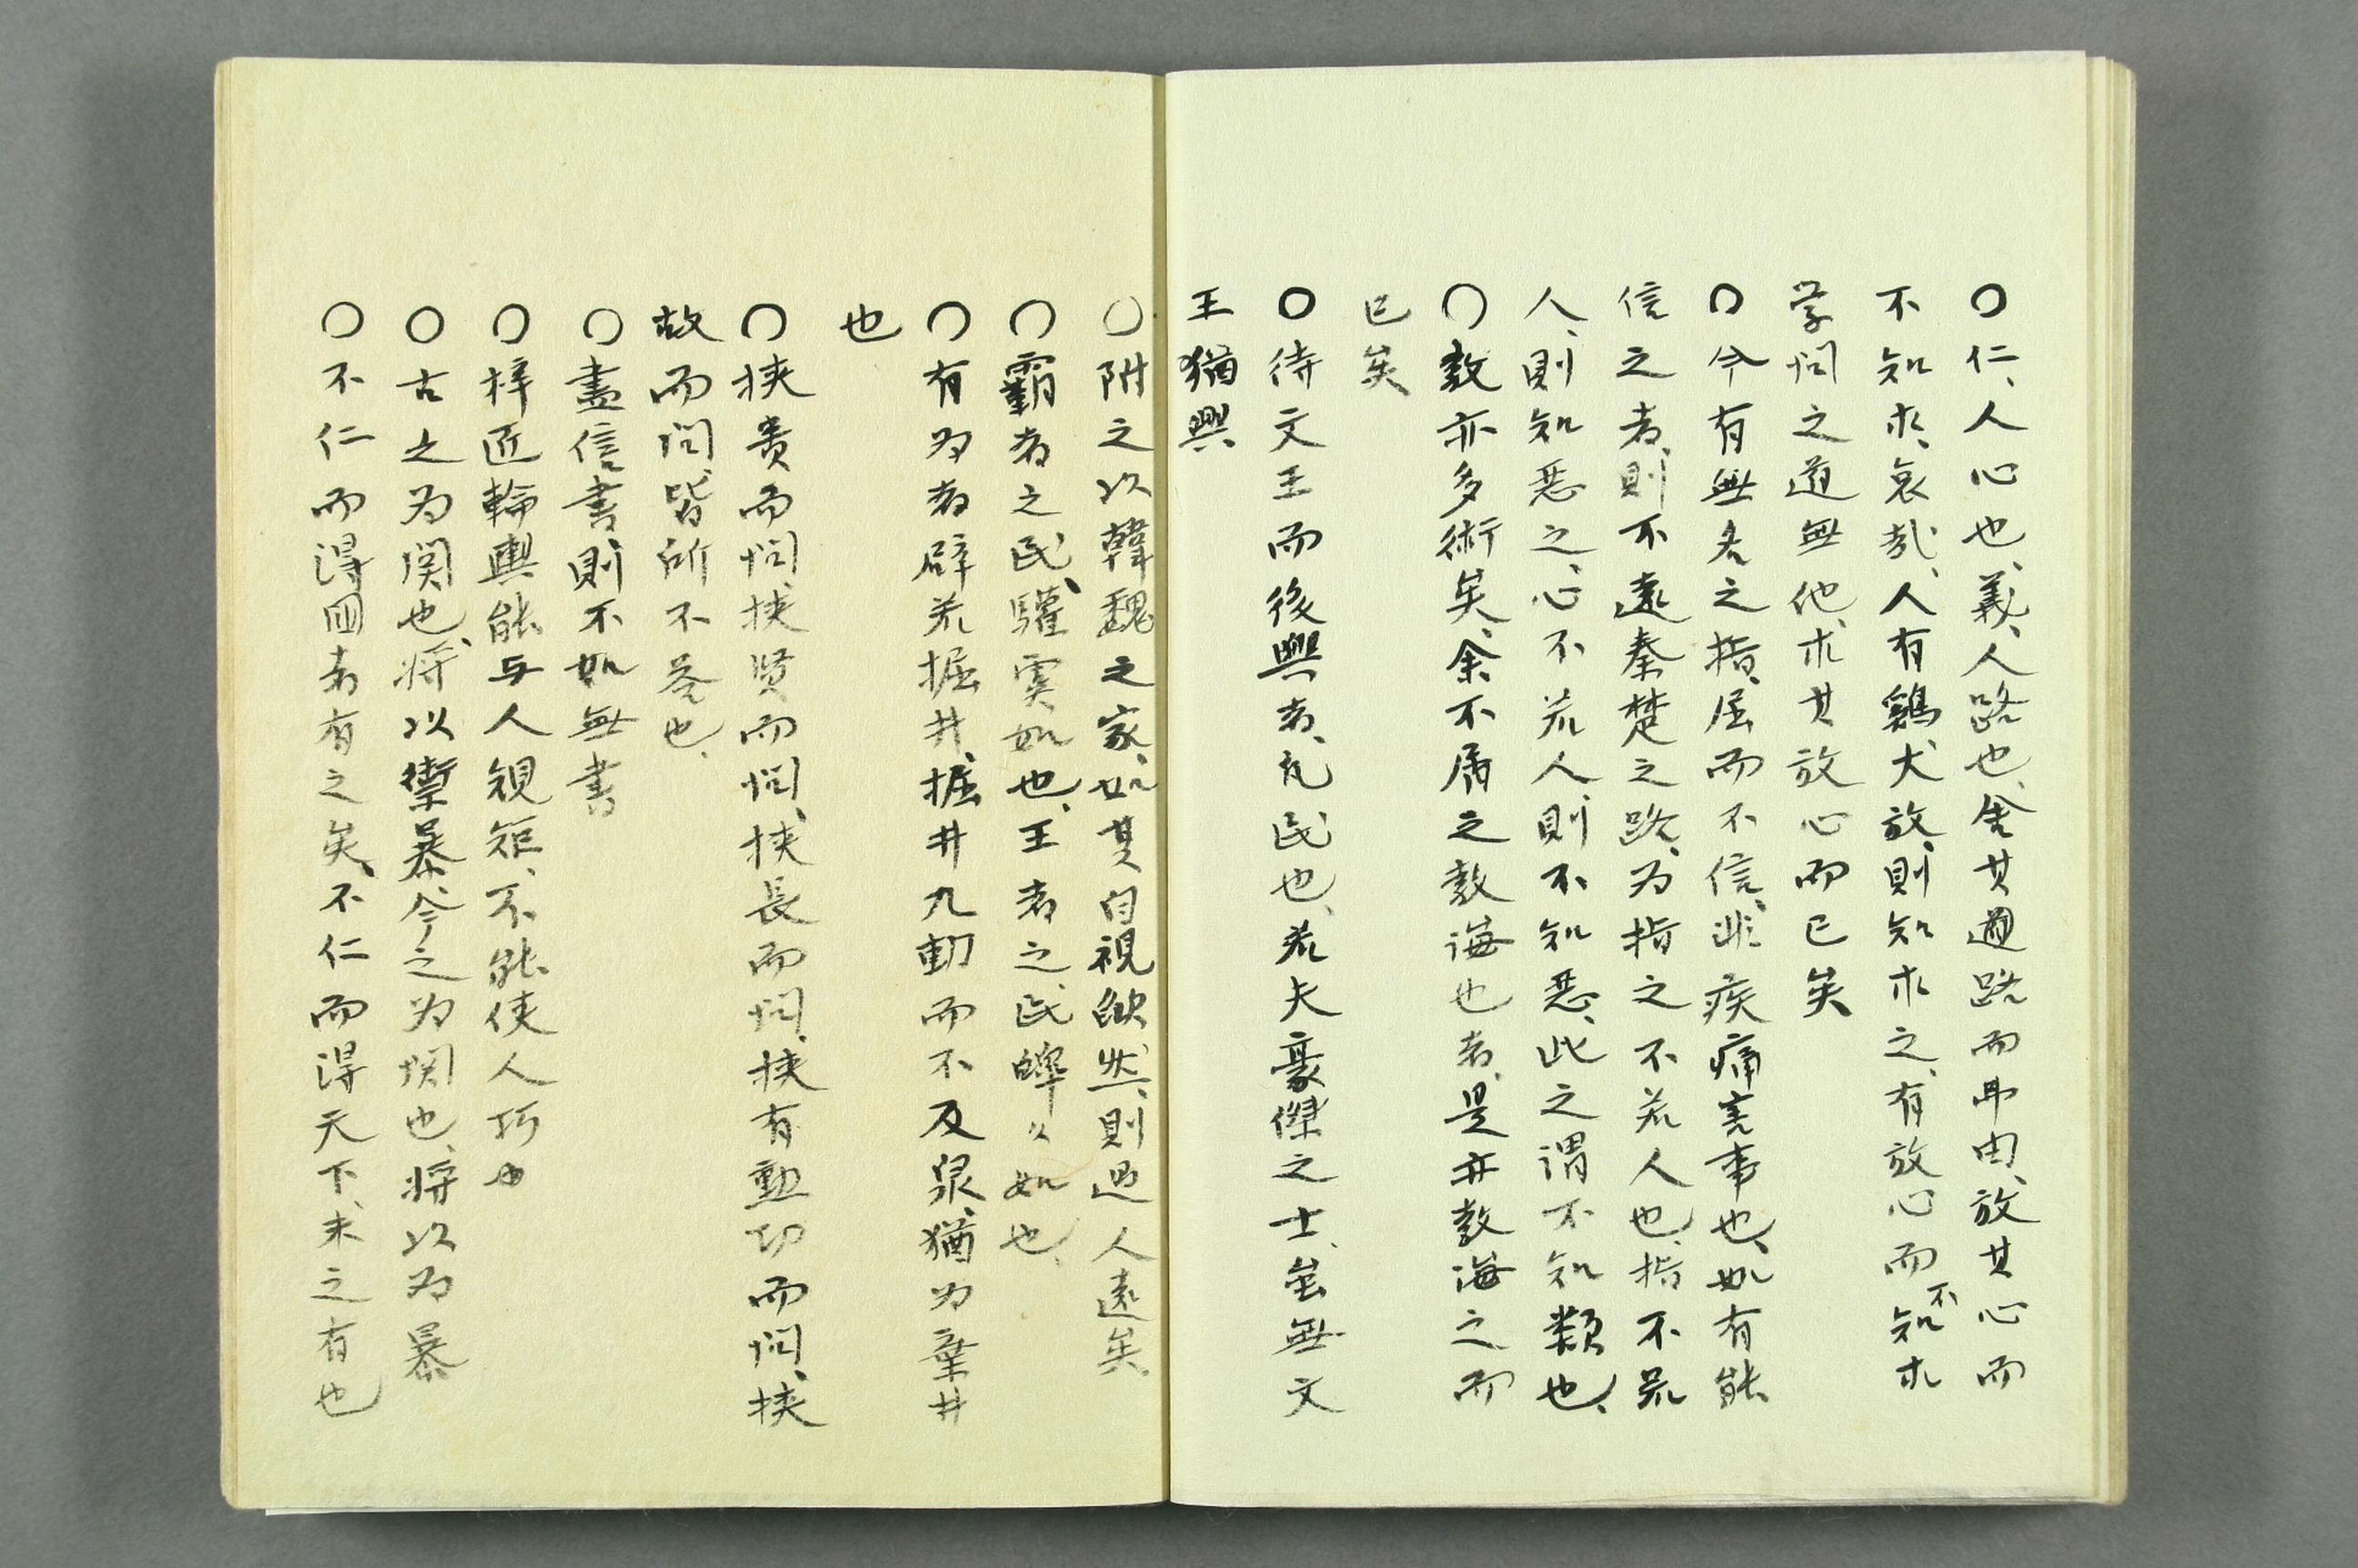 〇仁、人心也、義、人路也、舍其過路而弗由、放其心而
不知求、哀哉、人有鷄犬放、則知求之、有放心而不知求
学问之道無他、求其放心而已矣
〇今有無名之指、屈而不信、非疾痛害事也、如有能
信之者、則不遠秦楚之路、为指之不若人也、指不若
人、則知惡之、心不若人、則不知惡、此之谓不知類也、
〇教亦多術矣、余不屑之教诲也者、是亦教诲之而
已矣
〇待文王而後興者、凡民也、若夫豪傑之士、虽無文
王猶興
〇附之以韓魏之家、如其自視欿然、則過人遠矣、
〇霸者之民、驩虞如也、王者之民、皞〻如也、
〇有为者辟若掘井、掘井九軔而不及泉、猶为棄井
也
〇挟贵而问、挟贤而问、挟長而问、挟有勳功而问、挟
故而问、皆所不答也、
〇盡信書、則不如無書
〇梓匠輪輿能与人規矩、不能使人巧也
〇古之为関也、将以禦暴、今之为関也、将以为暴
〇不仁而得囯者有之矣、不仁而得天下、未之有也